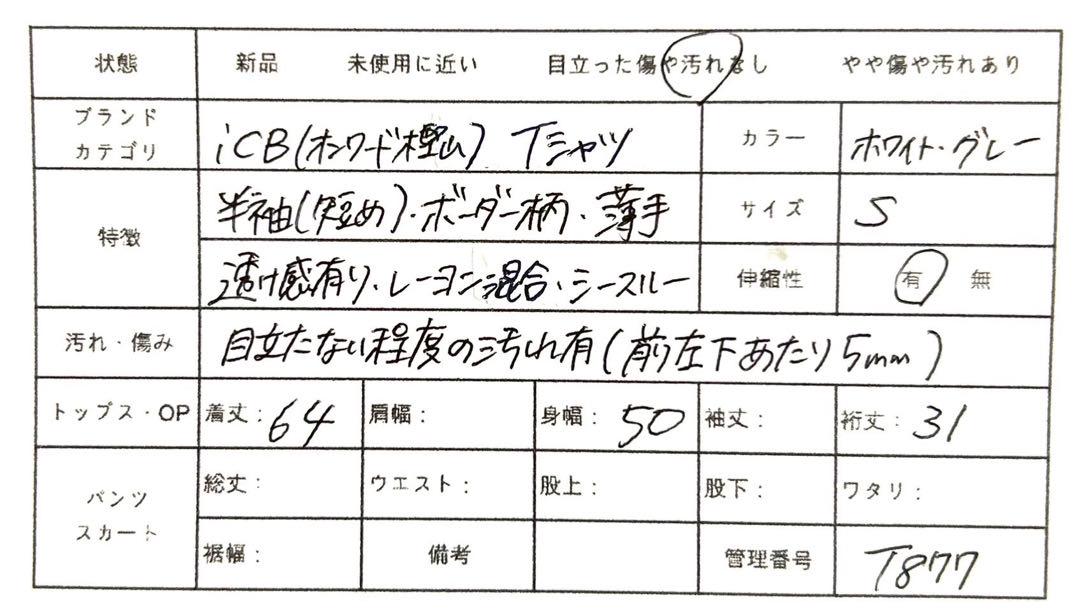 状態 新品 未使用に近い 目立った傷や汚れなし やや傷や汚れあり
ブランド
カテゴリ iCB(オンワード樫山) Tシャツ カラー ホワイト・グレー
特徴 半袖(短め)・ボーダー柄・薄手 サイズ S
透け感有り・レーヨン混合・シースルー 伸縮性 有 無
汚れ・傷み 目立たない程度の汚れ有(前左下あたり5mm)
トップス・OP 着丈:64 肩幅: 身幅:50 袖丈: 裄丈:31
パンツ
スカート 総丈: ウエスト: 股上: 股下: ワタリ:
裾幅: 備考 管理番号 T877